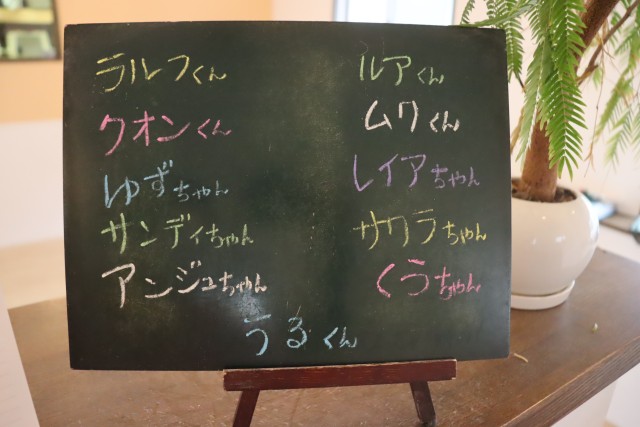 ラルフくん
クオンくん
ゆずちゃん
サンディちゃん
アンジュちゃん
ルアくん
ムクくん
レイアちゃん
サクラちゃん
くうちゃん
うるくん